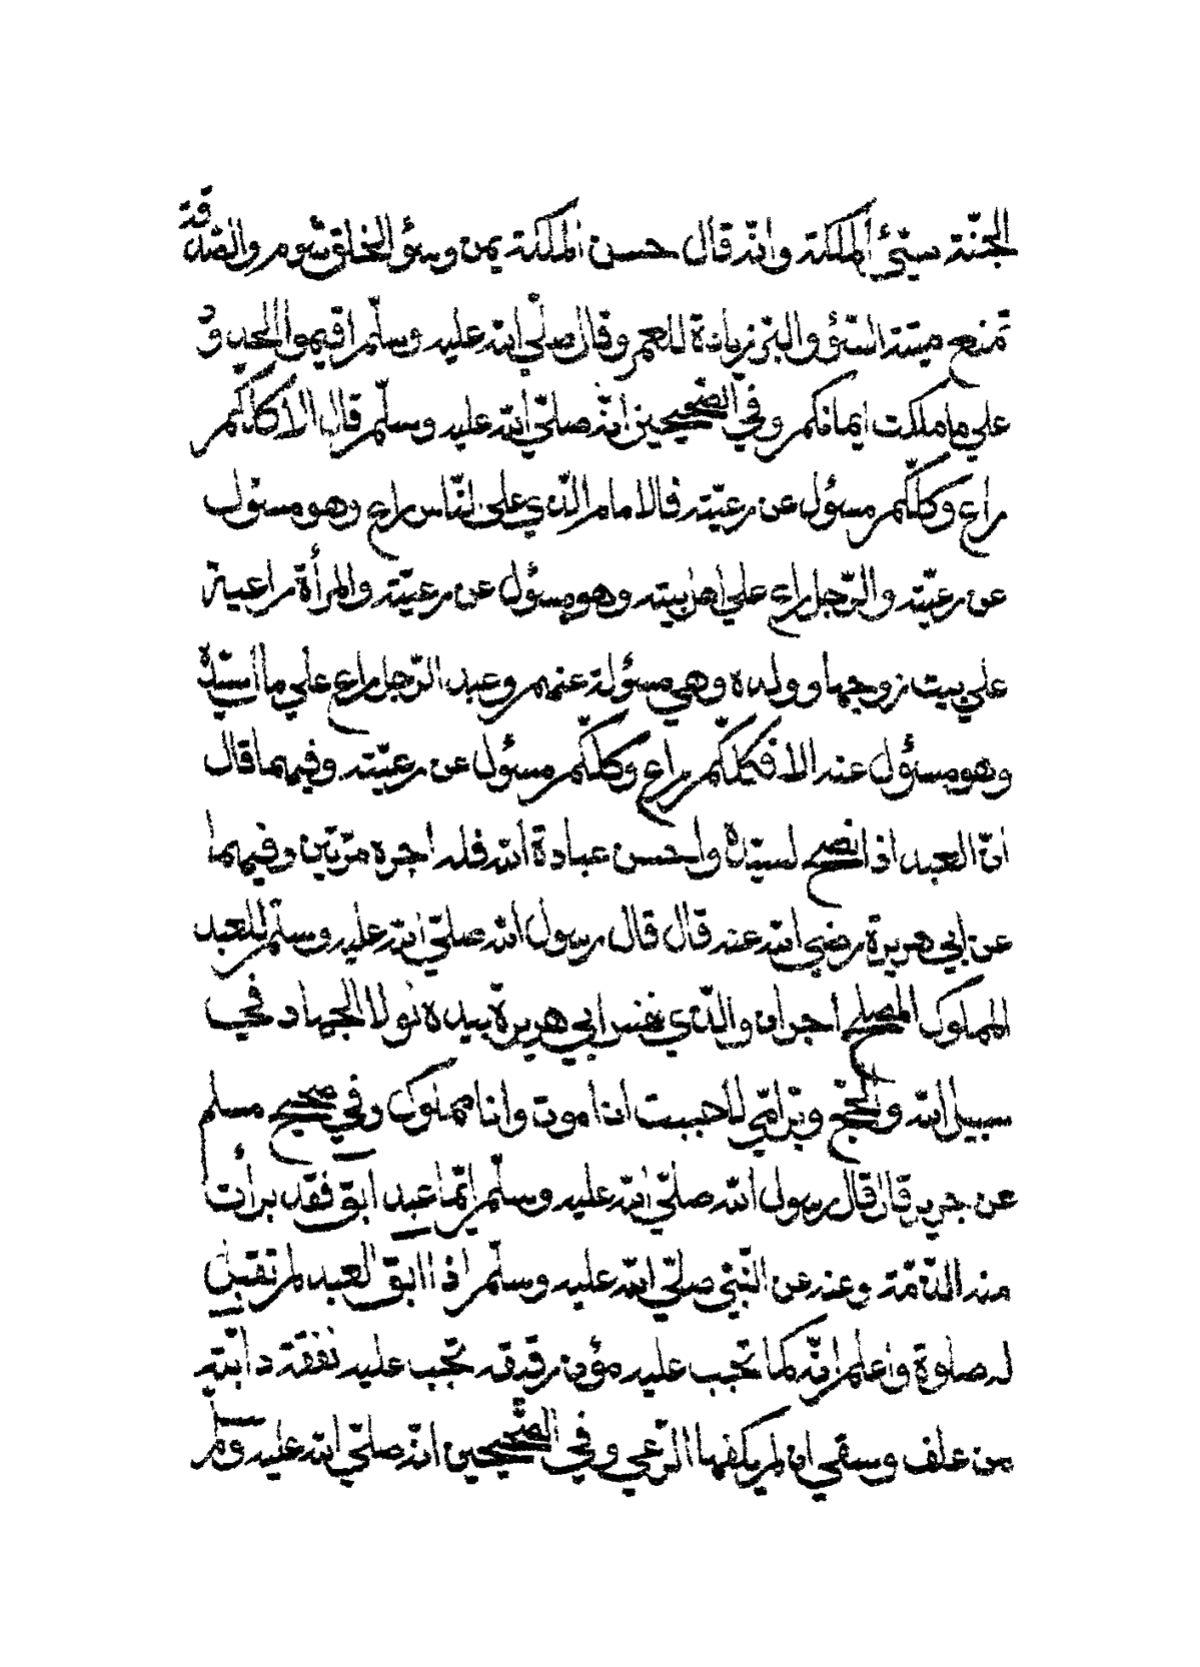 الجنّة سيّئ الملكة وانّه قال حسن الملكة يمن وسؤ الخلق شوم والصّدقة
تمنع ميتة السّؤ والبّر زيادة للعمر وقال صلّي الله عليه وسلّم اقيموا الحدود
علي ما ملكت ايمانكم وفي الصّحيحين انّه صلّي الله عليه وسلّم قال الا كلّكم
راع وكلّكم مسؤل عن رعيّته فالامام الّذي علي النّاس راع وهو مسئول
عن رعيّته والرّجل راع علي اهل بيته وهو مسؤل عن رعيّته والمرأة راعية
علي بيت زوجها وولده وهي مسؤلة عنهم وعبد الرّجل راع علي مال سيّده
وهو مسؤل عنه الا فكلّكم راع وكلّكم مسؤل عن رعيّته وفيهما قال
انّ العبد اذا نصح لسيّده واحسن عبادة الله فله اجره مرّتين وفيهما
عن ابي هريرة رضي الله عنه قال قال رسول الله صلّي الله عليه وسلّم للعبد
المملوك المصلح اجران والّذي نفس ابي هريرة بيده لولا الجهاد في
سبيل الله والحّج وبّر امّي لاحببت ان اموت وانا مملوك وفي صحيح مسلم
عن جرير قال قال رسول الله صلّي الله عليه وسلّم ايّما عبد ابق فقد برأت
منه الذّمّة وعنه عن النّبي صلّي الله عليه وسلّم اذا ابق العبد لم تقبل
له صلوة واعلم انّه كما تجب عليه مؤن رقيقه تجب عليه نفقة دابّته
من علف وسقي ان لم يكفها الرّعي وفي الصّحيحين انّه صلّي الله عليه وسلّم